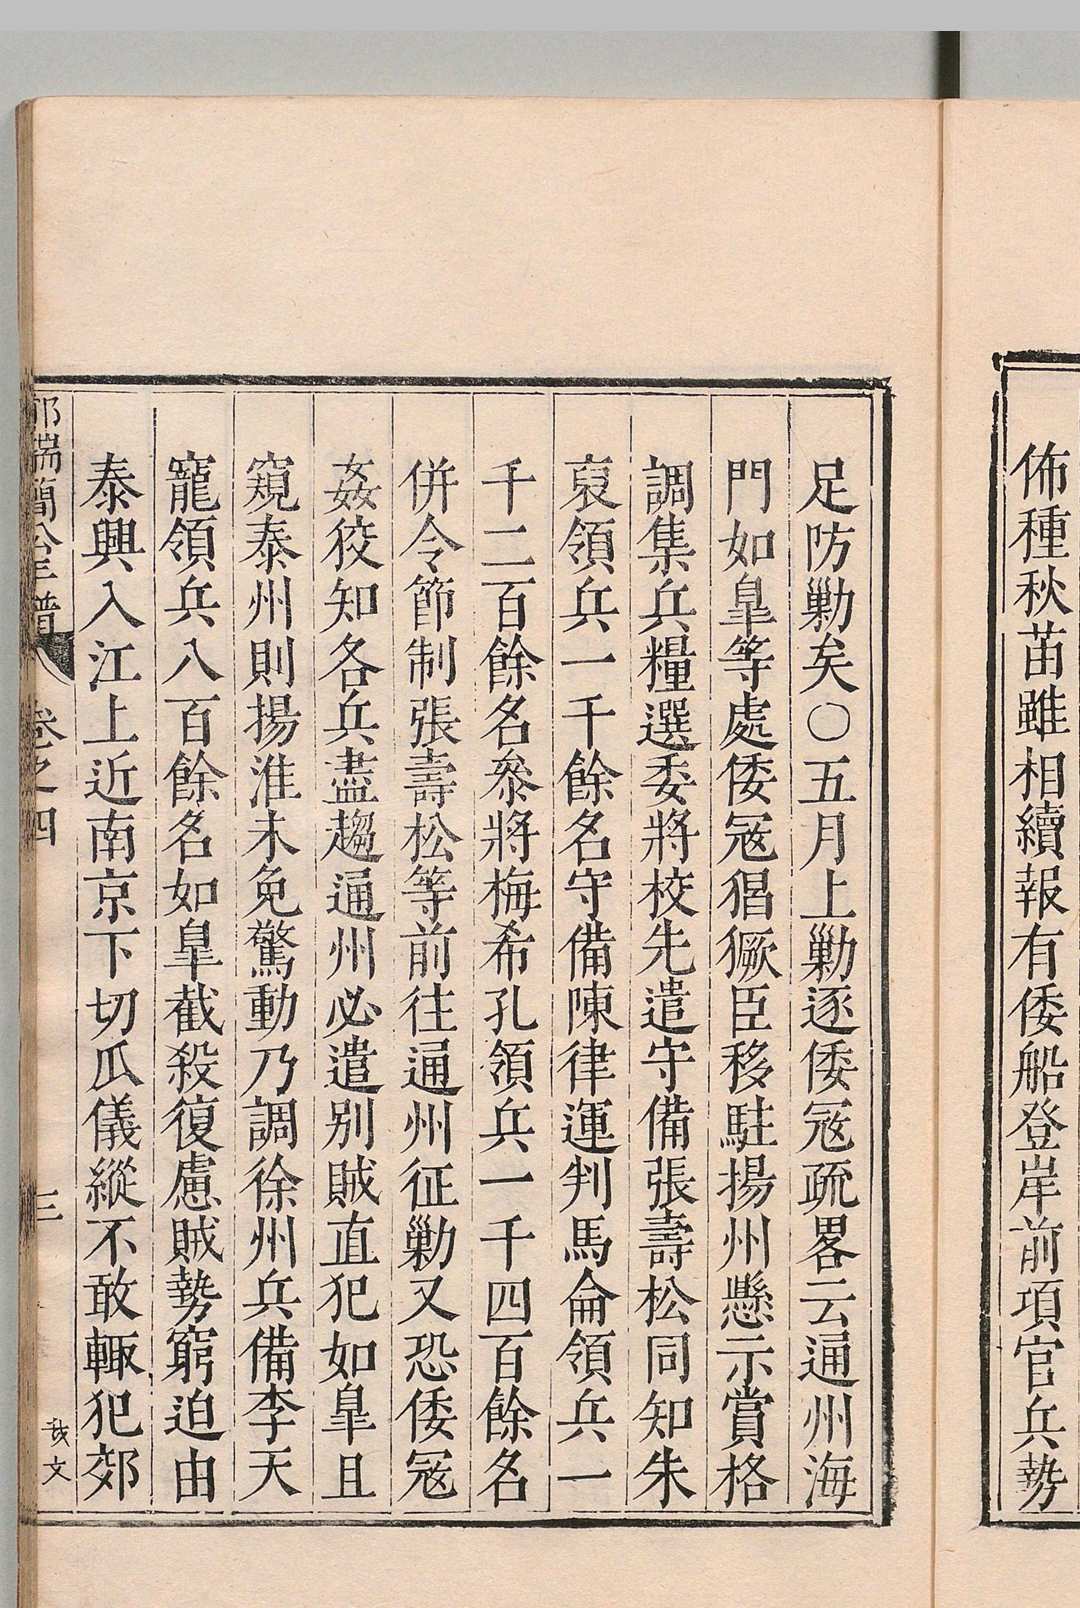 佈種秋苗雖相續報有倭船登岸前項官兵勢
足防勦矣〇五月上勦逐倭寇疏畧云通州海
門如臯等處倭寇猖獗臣移駐揚州懸示賞格
調集兵糧選委將校先遣守備張壽松同知朱
裒領兵一千餘名守備陳律運判馬侖領兵一
千二百餘名叅將梅希孔領兵一千四百餘名
併令節制張壽松等前往通州征勦又恐倭寇
姦狡知各兵盡趨通州必遣別賊直犯如臯且
窺泰州則揚淮未免驚動乃調徐州兵備李天
寵領兵八百餘名如臯截殺復慮賊勢窮迫由
泰興入江上近南京下切瓜儀縱不敢輙犯郊
端簡公
卷之四
三
文